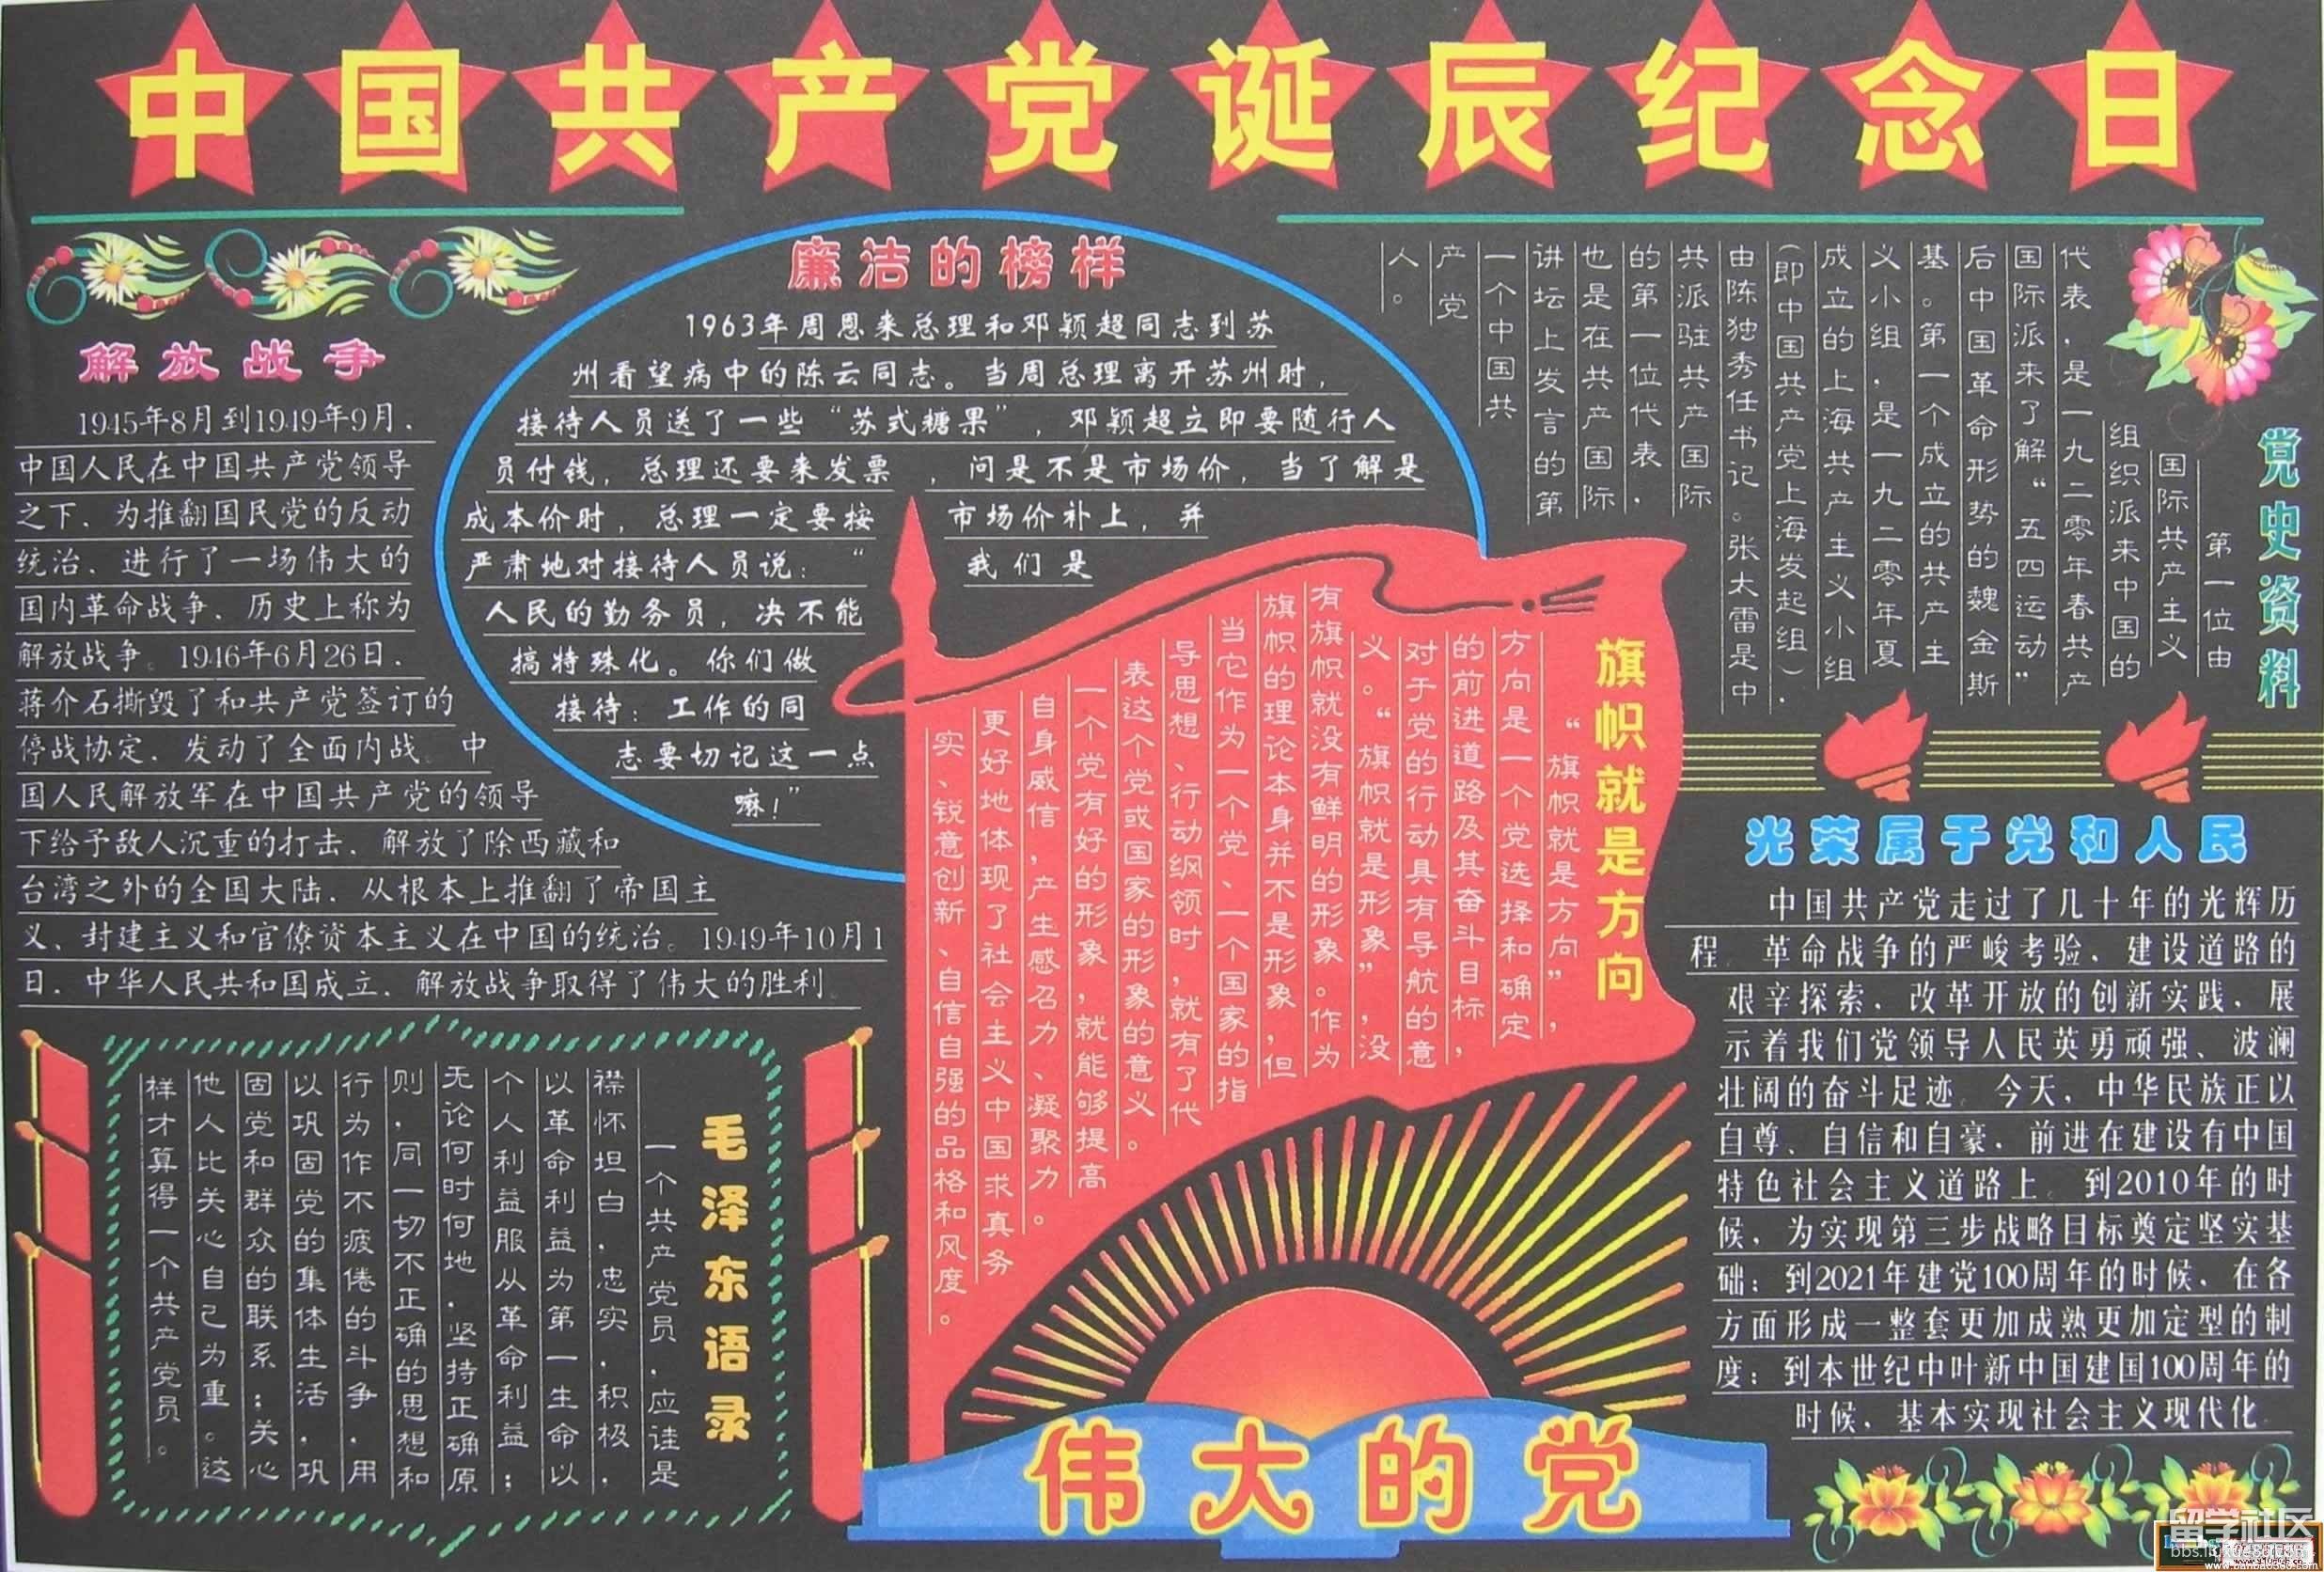 中国共产党诞辰纪念日
解放战争
1945年8月到1949年9月，
中国人民在中国共产党领导
之下，为推翻国民党的反动
统治，进行了一场伟大的
国内革命战争，历史上称为
解放战争。1946年6月26日，
蒋介石撕毁了和共产党签订的
停战协定，发动了全面内战。中
国人民解放军在中国共产党的领导
下给予敌人沉重的打击，解放了除西藏和
台湾之外的全国大陆，从根本上推翻了帝国主
义、封建主义和官僚资本主义在中国的统治。1949年10月1
日，中华人民共和国成立，解放战争取得了伟大的胜利。
廉洁的榜样
1963年周恩来总理和邓颖超同志到苏
州看望病中的陈云同志。当周总理离开苏州时，
接待人员送了一些“苏式糖果”，邓颖超立即要随行人
员付钱，总理还要来发票，问是不是市场价，当了解是
成本价时，总理一定要按市场价补上，并
严肃地对接待人员说：“我们是
人民的勤务员，决不能
搞特殊化。你们做
接待：工作的同
志要切记这一点
嘛！”
党史资料
第一位由
国际共产主义
组织派来中国的
代表，是一九二零年春共产
国际派来了解“五四运动”
后中国革命形势的魏金斯
基。第一个成立的共产主
义小组，是一九二零年夏
成立的上海共产主义小组
（即中国共产党上海发起组），
由陈独秀任书记。张太雷是中
共派驻共产国际
的第一位代表，
也是在共产国际
讲坛上发言的第
一个中国共
产党
人。
旗帜就是方向
“旗帜就是方向”，
方向是一个党选择和确定
的前进道路及其奋斗目标，
对于党的行动具有导航的意
义。“旗帜就是形象”，没
有旗帜就没有鲜明的形象。作为
旗帜的理论本身并不是形象，但
当它作为一个党、一个国家的指
导思想、行动纲领时，就有了代
表这个党或国家的形象的意义。
一个党有好的形象，就能够提高
自身威信，产生感召力、凝聚力。
更好地体现了社会主义中国求真务
实、锐意创新、自信自强的品格和风度。
光荣属于党和人民
中国共产党走过了几十年的光辉历
程。革命战争的严峻考验，建设道路的
艰辛探索，改革开放的创新实践，展
示着我们党领导人民英勇顽强、波澜
壮阔的奋斗足迹。今天，中华民族正以
自尊、自信和自豪，前进在建设有中国
特色社会主义道路上。到2010年的时
候，为实现第三步战略目标奠定坚实基
础；到2021年建党100周年的时候，在各
方面形成一整套更加成熟更加定型的制
度；到本世纪中叶新中国建国100周年的
时候，基本实现社会主义现代化。
毛泽东语录
一个共产党员，应诖是
襟怀坦白，忠实，积极，
以革命利益为第一生命以
个人利益服从革命利益；
无论何时何地，坚持正确原
则，同一切不正确的思想和
行为作不疲倦的斗争，用
以巩固党的集体生活，巩
固党和群众的联系；关心
他人比关心自己为重。这
样才算得一个共产党员。
伟大的党
留学社区